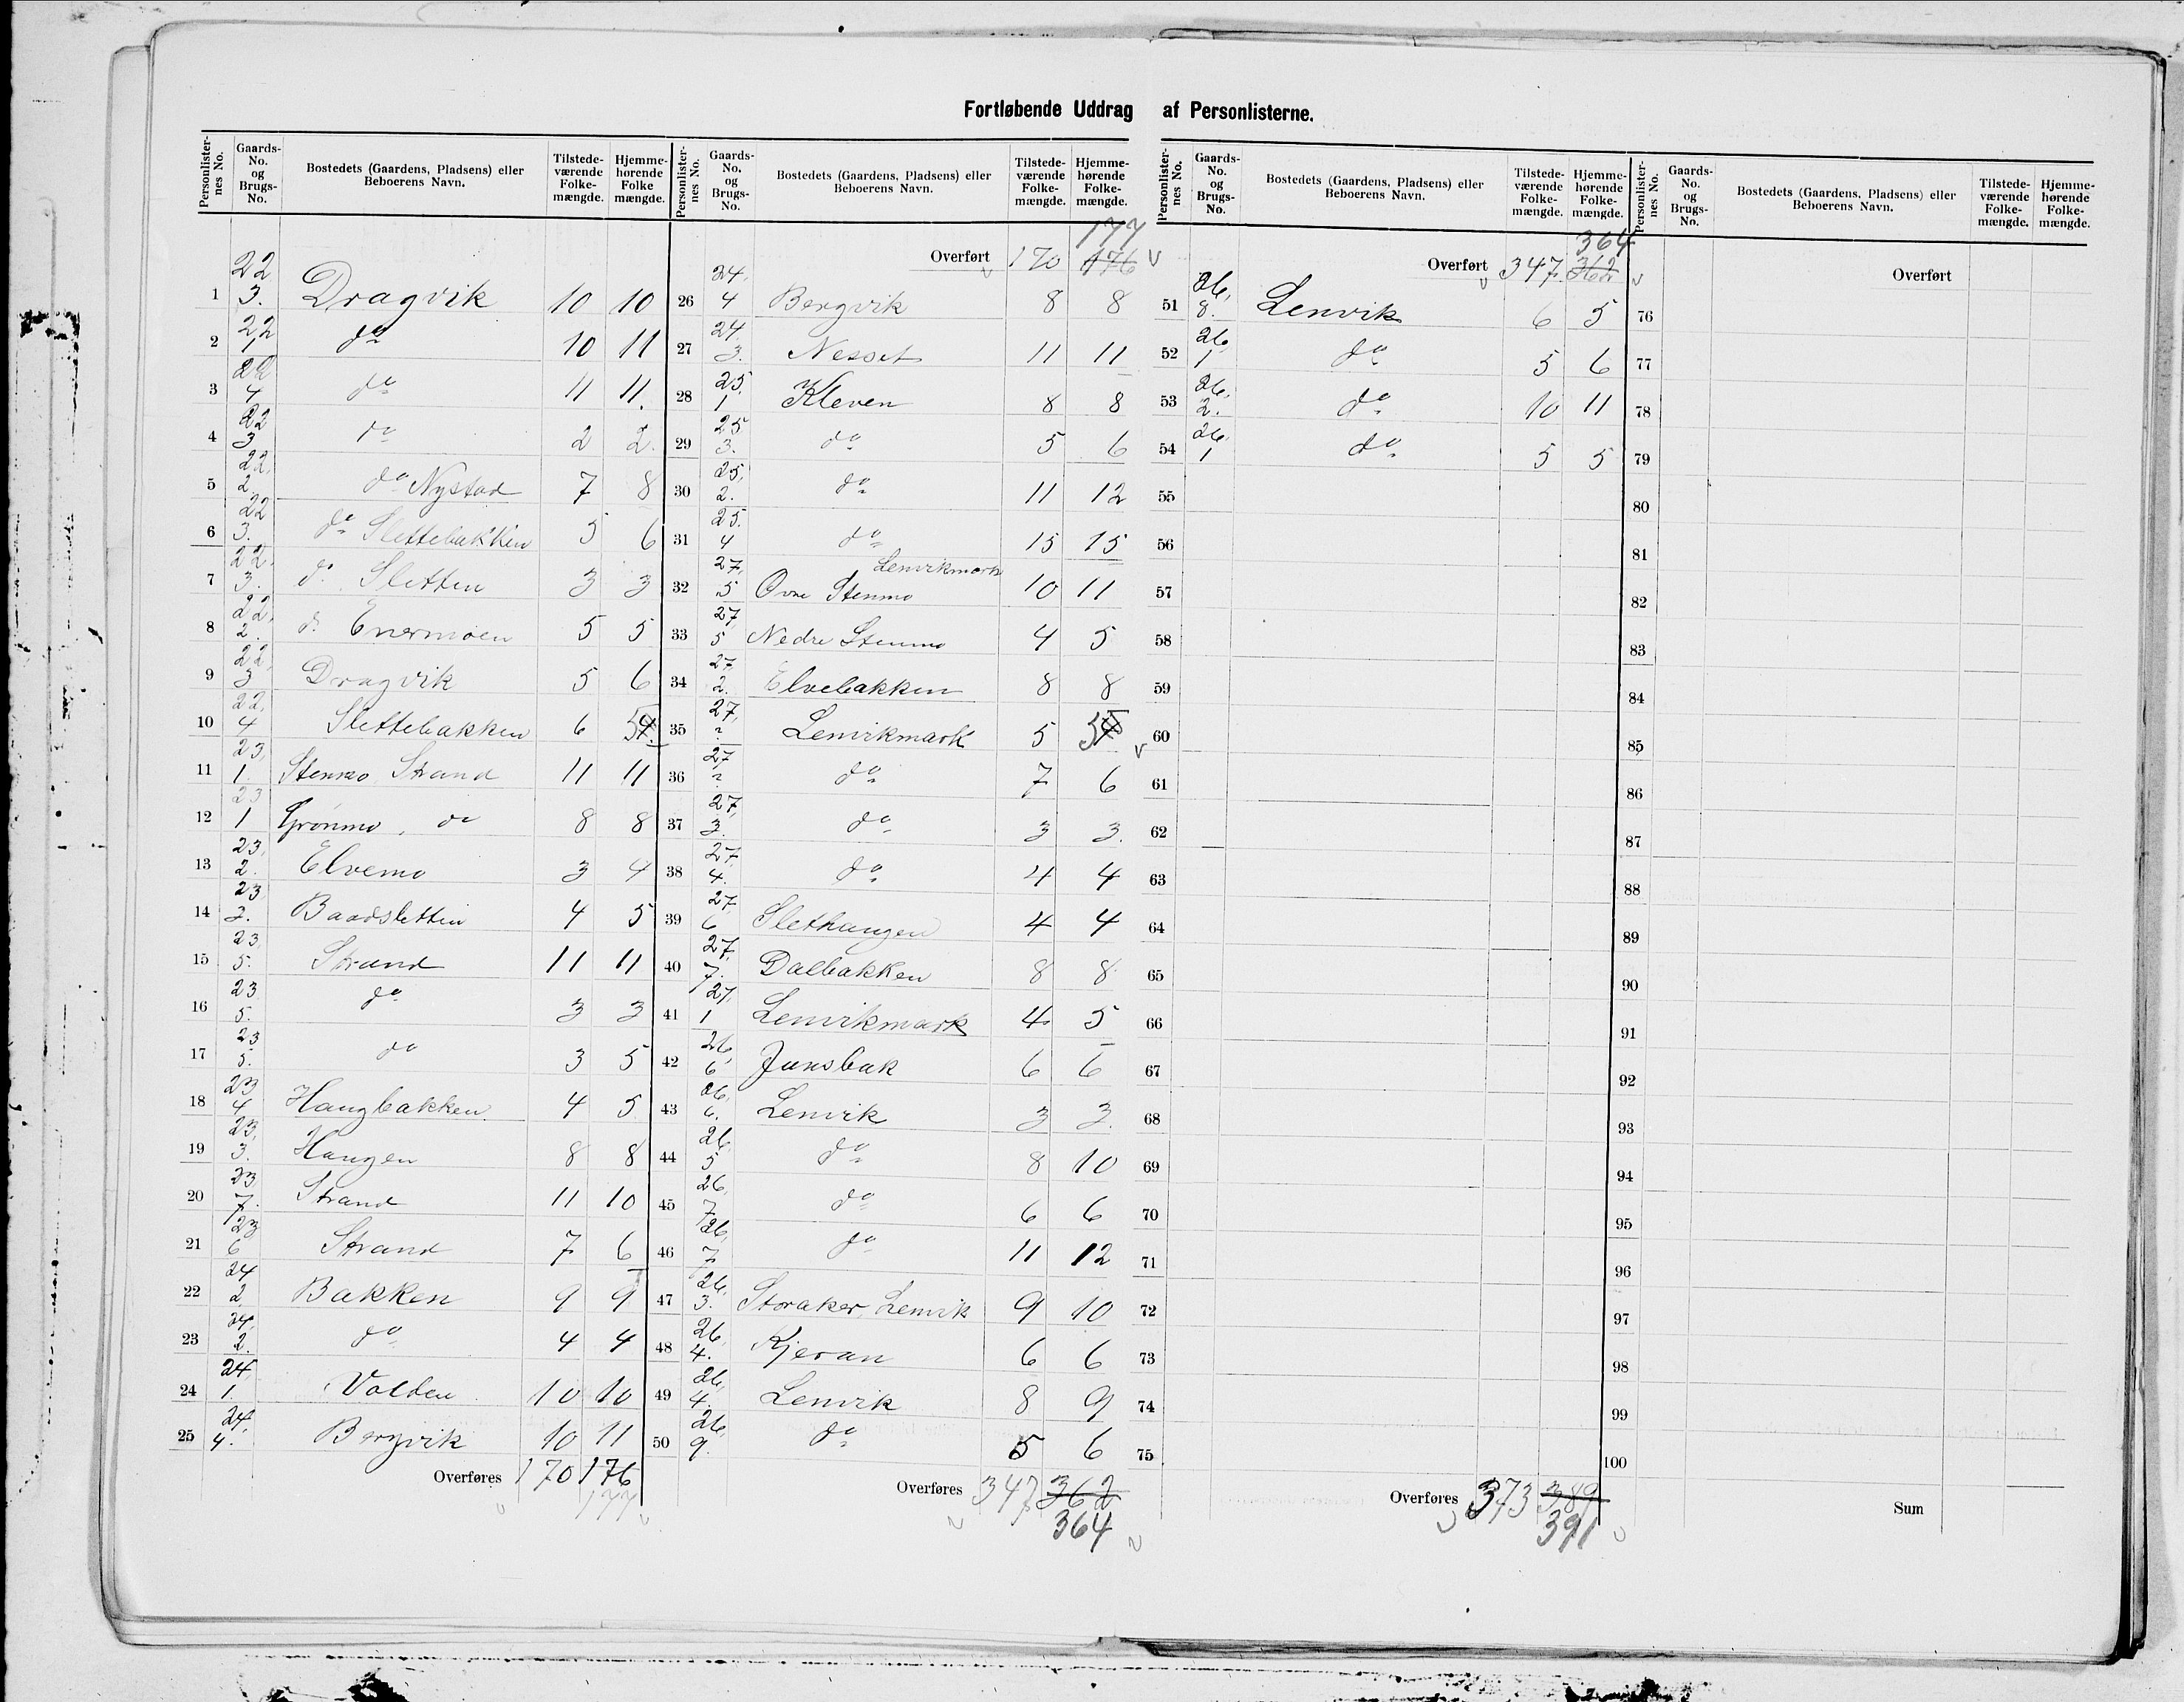 Fortløbende Uddrag af Personlisterne.
Personlisternes No. Gaards-No. og Brugs-No. Bostedets (Gaardens, Pladsens) eller Beboerens Navn. Tilstedeværende Folkemængde. Hjemmehørende Folkemængde.
1 22 3. Dragvik 10 10
2 22 1 do 10 11
3 22 4 do 11 11.
4 22 3 do 2 2.
5 22, 2 do Nystad 7 8
6 22 3. do Slettebakken 5 6
7 22, 3. do Sletten 3 3
8 22, 2. do Enermoen 5 5
9 22, 3 Dragvik 5 6
10 22, 4 Slettebakken 6 5
11 23, 1 Stenmo Strand 11 11
12 23 1 Grønmo, do 8 8
13 23, 2. Elvemo 3 4
14 23 2. Baadsletten 4 5
15 23, 5. Strand 11 11
16 23 5. do 3 3
17 23 5. do 3 5
18 23 4 Haugbakken 4 5
19 23, 3. Haugen 8 8
20 23 7. Strand 11 10
21 23 6 Strand 7 6
22 24 2 Bakken 9 9
23 24, 2. do 4 4
24 24, 1. Volden 10 10
25 24, 4. Bergvik 10 11
Overføres 170 176
177
177
Overført 170 176
26 24, 4 Bergvik 8 8
27 24 3. Nesset 11 11
28 25. 1 Kleven 8 8
29 25 3. do 5 6
30 25, 2. do 11 12
31 25. 4 do 15 15
Lenvikmark
32 27, 5 Øvre Stenmo 10 11
33 27, 5 Nedre Stenmo 4 5
34 27 2. Elvebakken 8 8
35 27, 2 Lenvikmark 5 5
36 27 2 do 7 6
37 27, 3. do 3 3.
38 27. 4. do 4 4
39 27, 6 Slethaugen 4 4
40 27, 7. Dalbakken 8 8
41 27, 1 Lenvikmark 4 5
42 26, 6 Jansbak 6 6
43 26, 6. Lenvik 3 3.
44 26 5 do 8 10
45 26, 7 do 6 6
46 26, 7 do 11 12
47 26, 3. Storaker, Lenvik 9 10
48 26, 4. Kjeran 6 6
49 26, 4. Lenvik 8 9
50 26, 9. do 5 6
Overføres 347 362
364
364
Overført 347. 362
51 26, 8. Lenvik 6 5
52 26, 1 do 5 6
53 26, 2. do 10 11
54 26, 1 do 5 5
55
56
57
58
59
60
61
62
63
64
65
66
67
68
69
70
71
72
73
74
75
Overføres 373 389
391
Overført
76
77
78
79
80
81
82
83
84
85
86
87
88
89
90
91
92
93
94
95
96
97
98
99
100
Sum